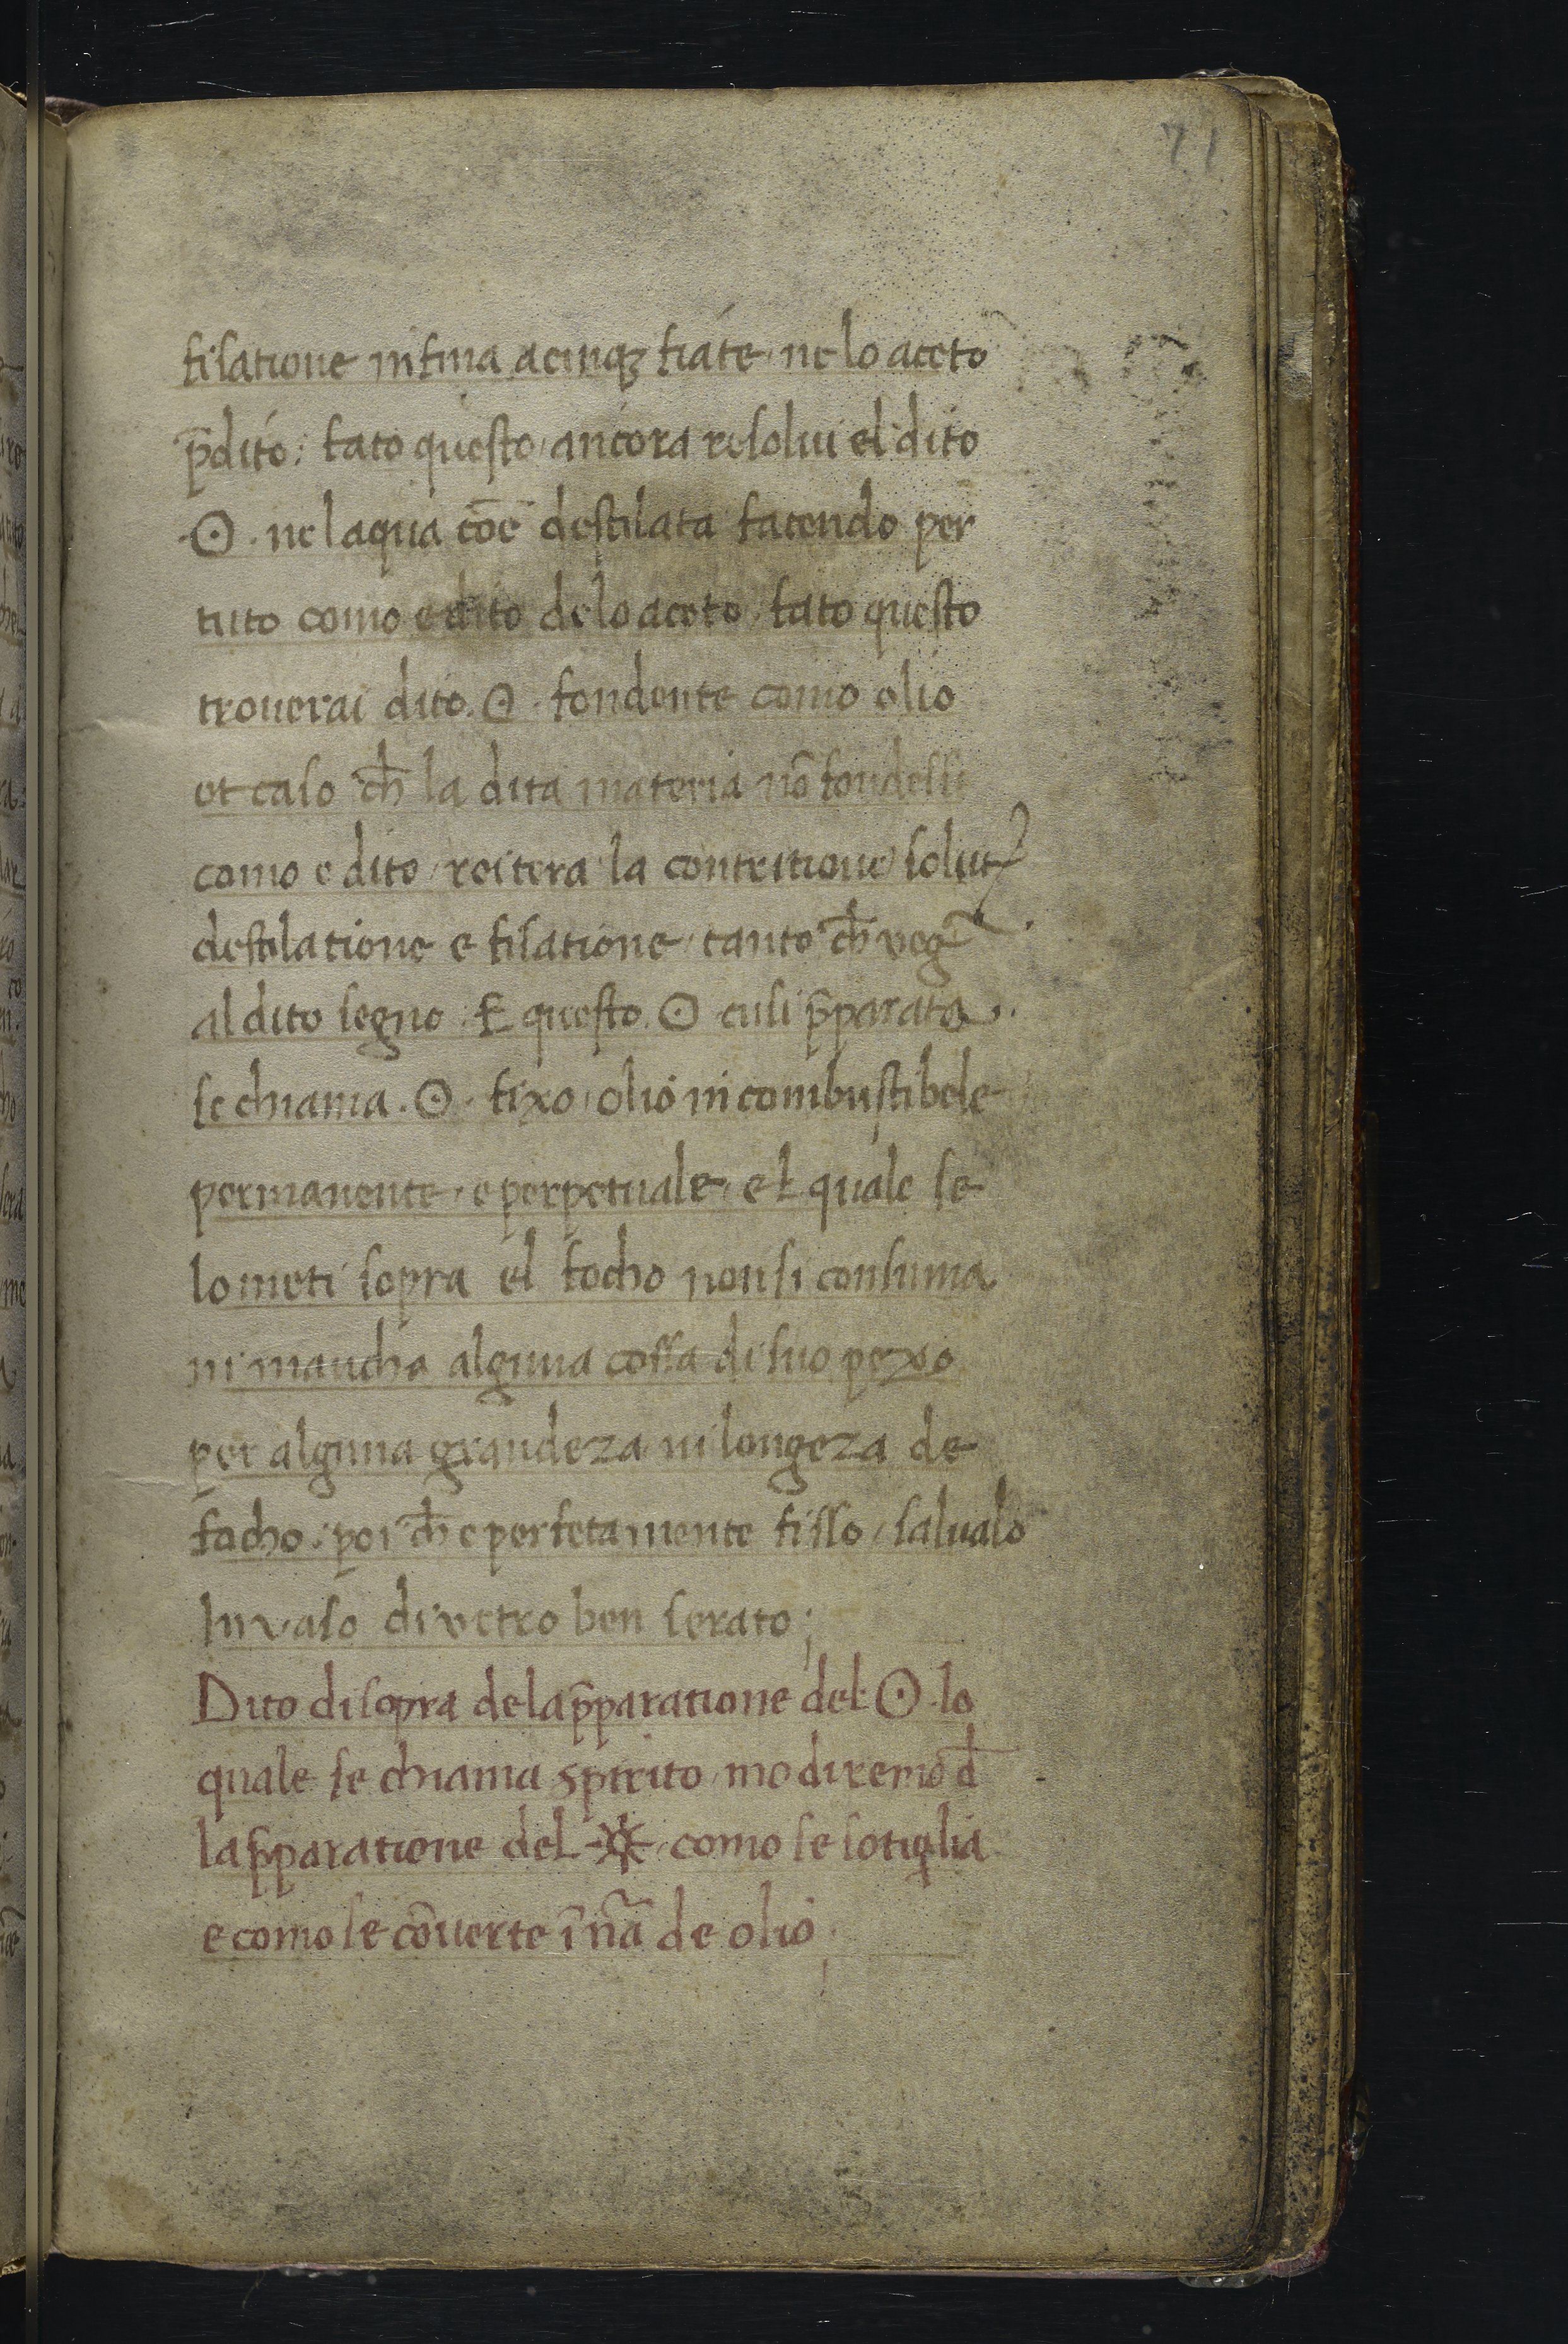 71
filatione infina acinqꝫ fiate ne lo aceto
p̄dito: fato questo ancora resolui el dito
·☉· nel aqua cōe destilata facendo per
tuto como e dito de lo aceto, fato questo
trouerai dito ☉ · fondente como olio
et caso ch̄ la dita materia nō fondessi
como e dito, reitera la contritione, solut
destilatione e filatione, tanto ch̄ veg
al dito segno: E questo ☉ cusi p̄parato.
se chiama · ☉ · fixo, olio incombustibele
permanente, e perpetuale, el quale se
lo meti sopra el focho non si consuma
ni mancha alguna cossa di suo pexo
per alguna grandeza ni longeza de
focho: per ch̄ e perfetamente fisso, salualo
In vaso di vetro ben serato;
Dito di sopra de la p̄paratione del ☉ lo
quale se chiama spirito, mo diremo d̄
la p̄paratione del ☼ como se sotiglia
e como se cōuerte ī nā de olio